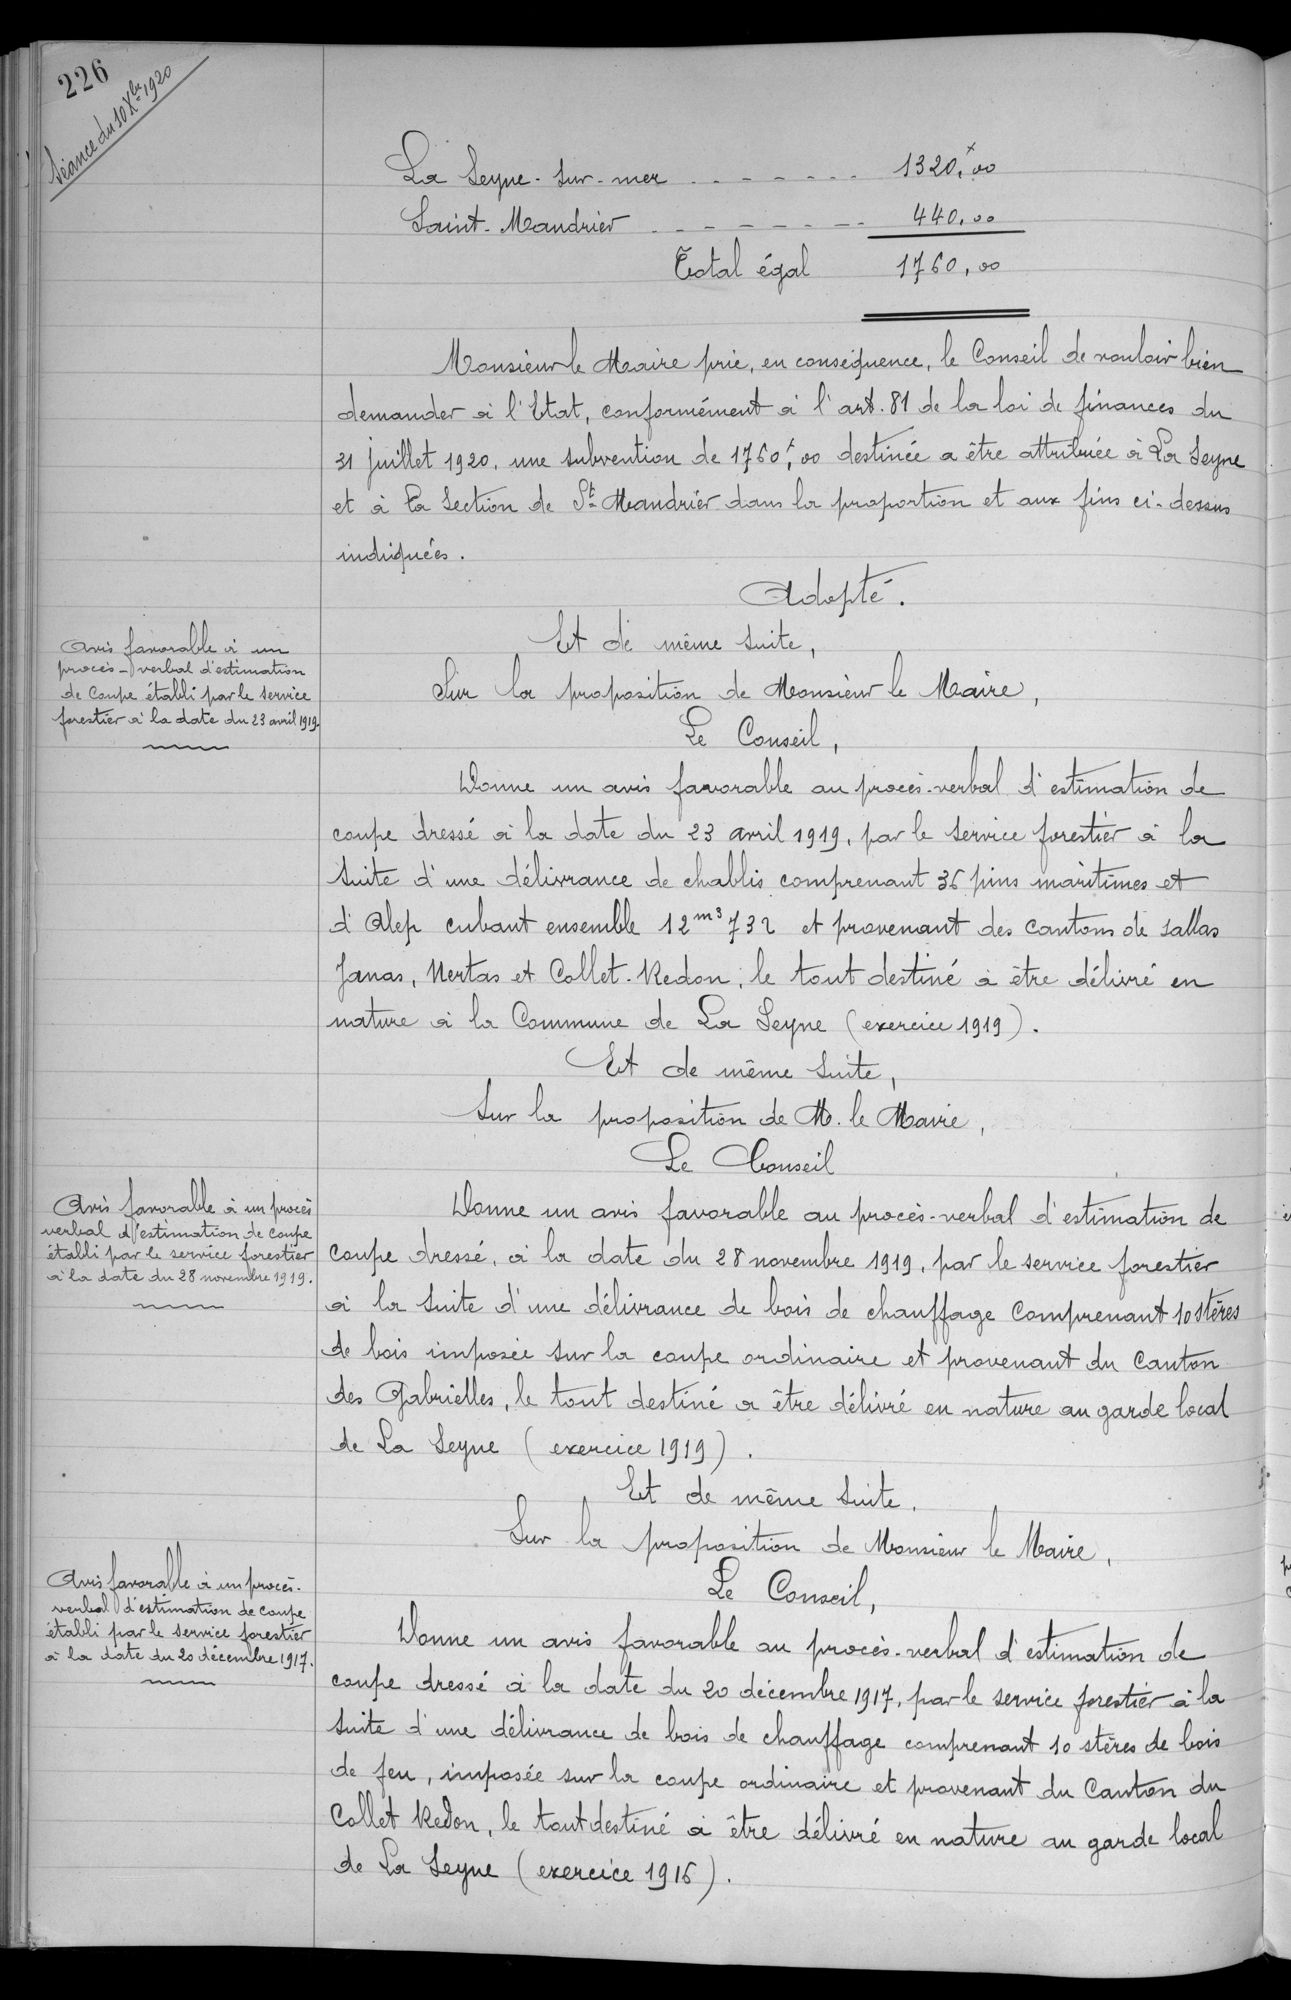 226
Séance du 10 Xbre 1920
La Seyne-sur-mer - - - - - - - 1320f,00
Saint-Mandrier - - - - - - - - 440,00
Total égal 1760,00
Monsieur le Maire prie, en conséquence, le Conseil de vouloir bien
demander à l'Etat, conformément à l'art. 81 de la loi de finances du
31 juillet 1920, une subvention de 1760f,00 destinée a être attribuée à La Seyne
et à la Section de St Mandrier dans la proportion et aux fins ci-dessus
indiquées.
Adopté.
Et de même suite,
Avis favorable à un
procès-verbal d'estimation
de Coupe établi par le service
forestier à la date du 23 avril 1919.
Sur la proposition de Monsieur le Maire,
Le Conseil,
Donne un avis favorable au procès-verbal d'estimation de
coupe dressé à la date du 23 avril 1919, par le service forestier à la
suite d'une délivrance de chablis comprenant 36 pins maritimes et
d'Alep cubant ensemble 12m3732 et provenant des cantons de Sallas
Janas, Nertas et Collet-Redon, le tout destiné à être délivré en
nature à la Commune de La Seyne (exercice 1919).
Et de même suite,
Sur la proposition de M. le Maire,
Le Conseil
Avis favorable à un procès
verbal d'estimation de coupe
établi par le service forestier
à la date du 28 novembre 1919.
Donne un avis favorable au procès-verbal d'estimation de
coupe dressé, à la date du 28 novembre 1919, par le service forestier
à la suite d'une délivrance de bois de chauffage comprenant 10 stères
de bois imposée sur la coupe ordinaire et provenant du Canton
des Gabrielles, le tout destiné a être délivré en nature au garde local
de La Seyne (exercice 1919).
Et de même suite,
Sur la proposition de Monsieur le Maire,
Le Conseil,
Avis favorable à un procès-
verbal d'estimation de coupe
établi par le service forestier
à la date du 20 décembre 1917.
Donne un avis favorable au procès-verbal d'estimation de
coupe dressé à la date du 20 décembre 1917, par le service forestier à la
suite d'une délivrance de bois de chauffage comprenant 10 stères de bois
de feu, imposée sur la coupe ordinaire et provenant du Canton du
Collet Redon, le tout destiné à être délivré en nature au garde local
de La Seyne (exercice 1916).